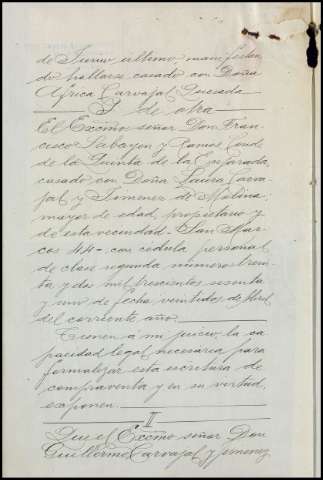 de Junio último, manifestan
do hallarse casado con Doña
Africa Carvajal Quesada
Y de otra
El Excmo señor Don Fran-
cisco Labayon y Ramos Conde
de la Quinta de la Enjarada,
casado con Doña Laura Carva-
jal y Jimenez de Molina,
mayor de edad, propietario y
de esta vecindad - San Mar-
cos 44 - con cédula personal
de clase segunda número trein
ta y dos mil trescientos sesenta
y uno de fecha veintidos de Abril
del corriente año.
Tienen á mi juicio, la ca
pacidad legal necesaria para
formalizar esta escritura de
compraventa y en su virtud,
exponen
II
Que el Excmo señor Don
Guillermo Carvajal y Jimenez